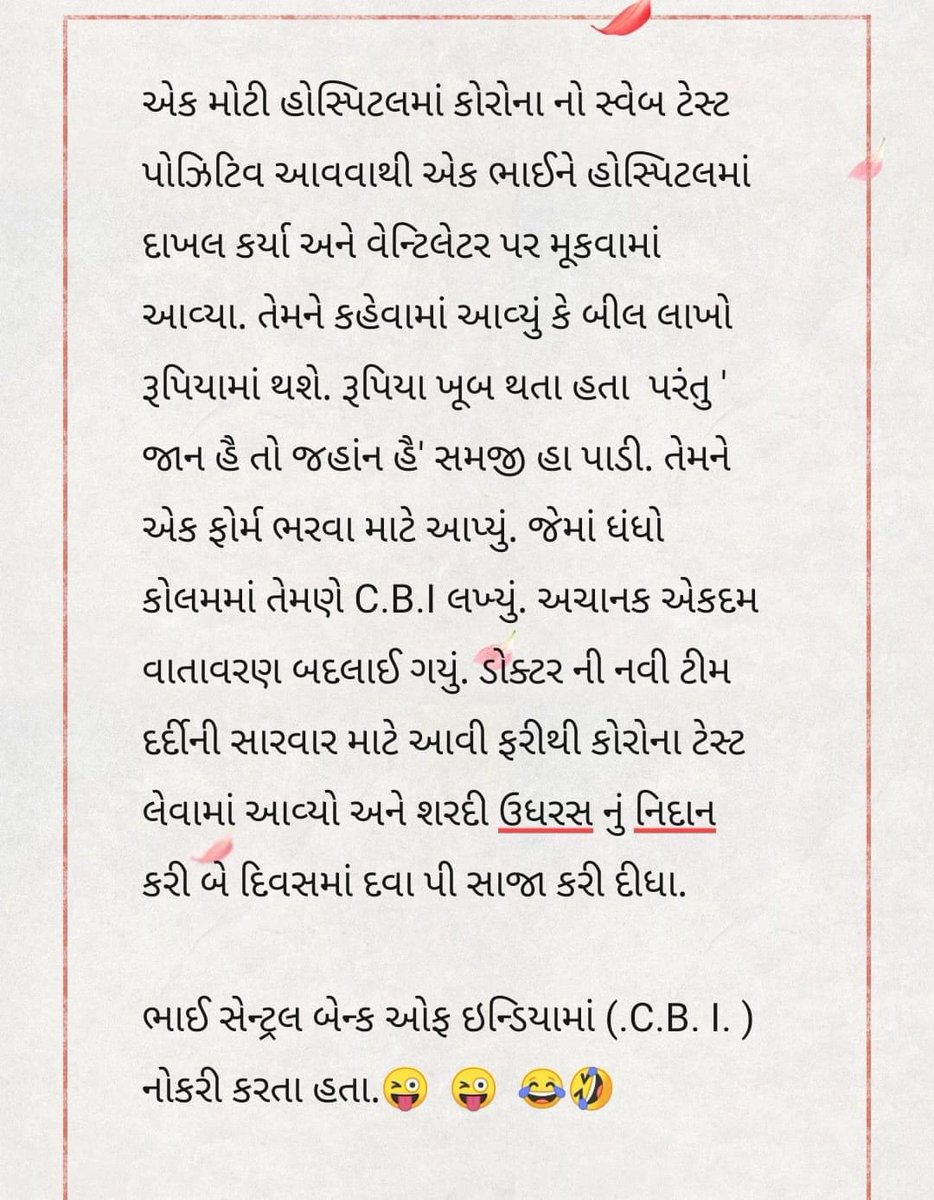 એક મોટી હોસ્પિટલમાં કોરોના નો સ્વેબ ટેસ્ટ
પોઝિટિવ આવવાથી એક ભાઈને હોસ્પિટલમાં
દાખલ કર્યા અને વેન્ટિલેટર પર મૂકવામાં
આવ્યા. તેમને કહેવામાં આવ્યું કે બીલ લાખો
રૂપિયામાં થશે. રૂપિયા ખૂબ થતા હતા  પરંતુ '
જાન હૈ તો જહાંન હૈ' સમજી હા પાડી. તેમને
એક ફોર્મ ભરવા માટે આપ્યું. જેમાં ધંધો
કોલમમાં તેમણે C.B.I લખ્યું. અચાનક એકદમ
વાતાવરણ બદલાઈ ગયું. ડોક્ટર ની નવી ટીમ
દર્દીની સારવાર માટે આવી ફરીથી કોરોના ટેસ્ટ
લેવામાં આવ્યો અને શરદી ઉધરસ નું નિદાન
કરી બે દિવસમાં દવા પી સાજા કરી દીધા.
ભાઈ સેન્ટ્રલ બેન્ક ઓફ ઇન્ડિયામાં (.C.B. I. )
નોકરી કરતા હતા.😜 😜 😂🤣